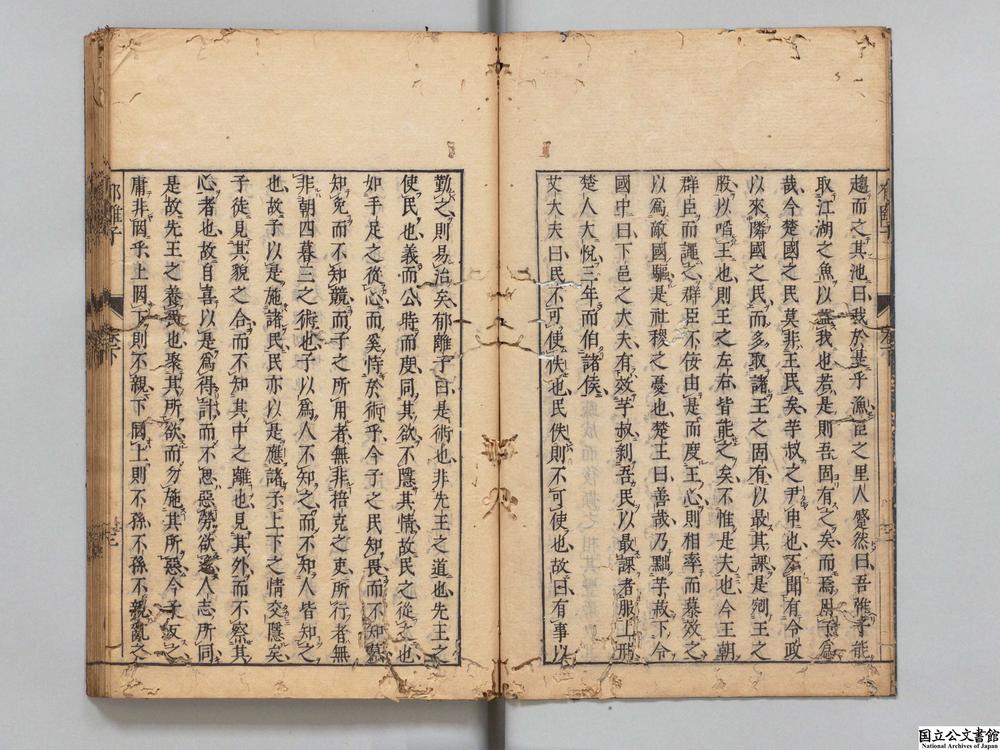 趨而之其池曰我於是乎漁邑之里人蹙然曰吾雖子能
取江湖之魚以蓋我也若是則吾固有之矣而焉用子爲
哉今楚國之民莫非王民矣芋叔之尹申也不聞有令政
以來隣國之民而多取諸王之固有以最其課是剜王之
股以啗王也則王之左右皆能之矣不惟是夫也今王朝
群臣而繩之群臣不佞由是而度王心則相率而慕效之
以爲敵國驅是社稷之憂也楚王曰善哉乃黜芋叔下令
國中曰下邑之大夫有效芋叔剝吾民以最課者服上刑
楚人大悅三年而伯諸侯
艾大夫曰民不可使佚也民佚則不可使也故曰有事以
勤之則易治矣郁離子曰是術也非先王之道也先王之
使民也義而公時而度同其欲不隱其情故民之從之也
如手足之從心而奚恃於術乎今子之民知畏而不知慕
知免而不知競而子之所用者無非掊克之吏所行者無
非朝四暮三之術也子以爲人不知之而不知人皆知之
也故子以是施諸民民亦以是應諸子上下之情交隱矣
子徒見其貌之合而不知其中之離也見其外而不察其
心者也故自喜以是爲得計而不思惡勞欲逸人志所同
是故先王之養民也聚其所欲而勿施其所惡今子反之
庸非罔乎上罔下則不親下罔上則不孫不孫不親亂之
郁離子
国立公文書館
National Archives of Japan